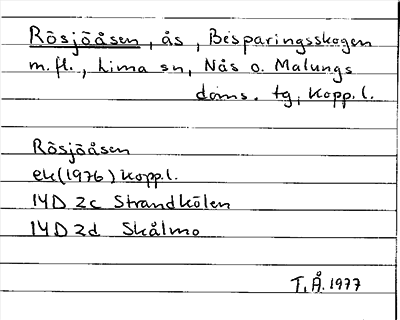 Rösjöåsen, ås, Besparingsskogen
m.fl., Lima sn, Nås o. Malungs
doms. tg, Kopp.l.
Rösjöåsen
ek(1976) Kopp.l.
14D 2c Strandkölen
14D 2d Skålmo
T.Å.1977